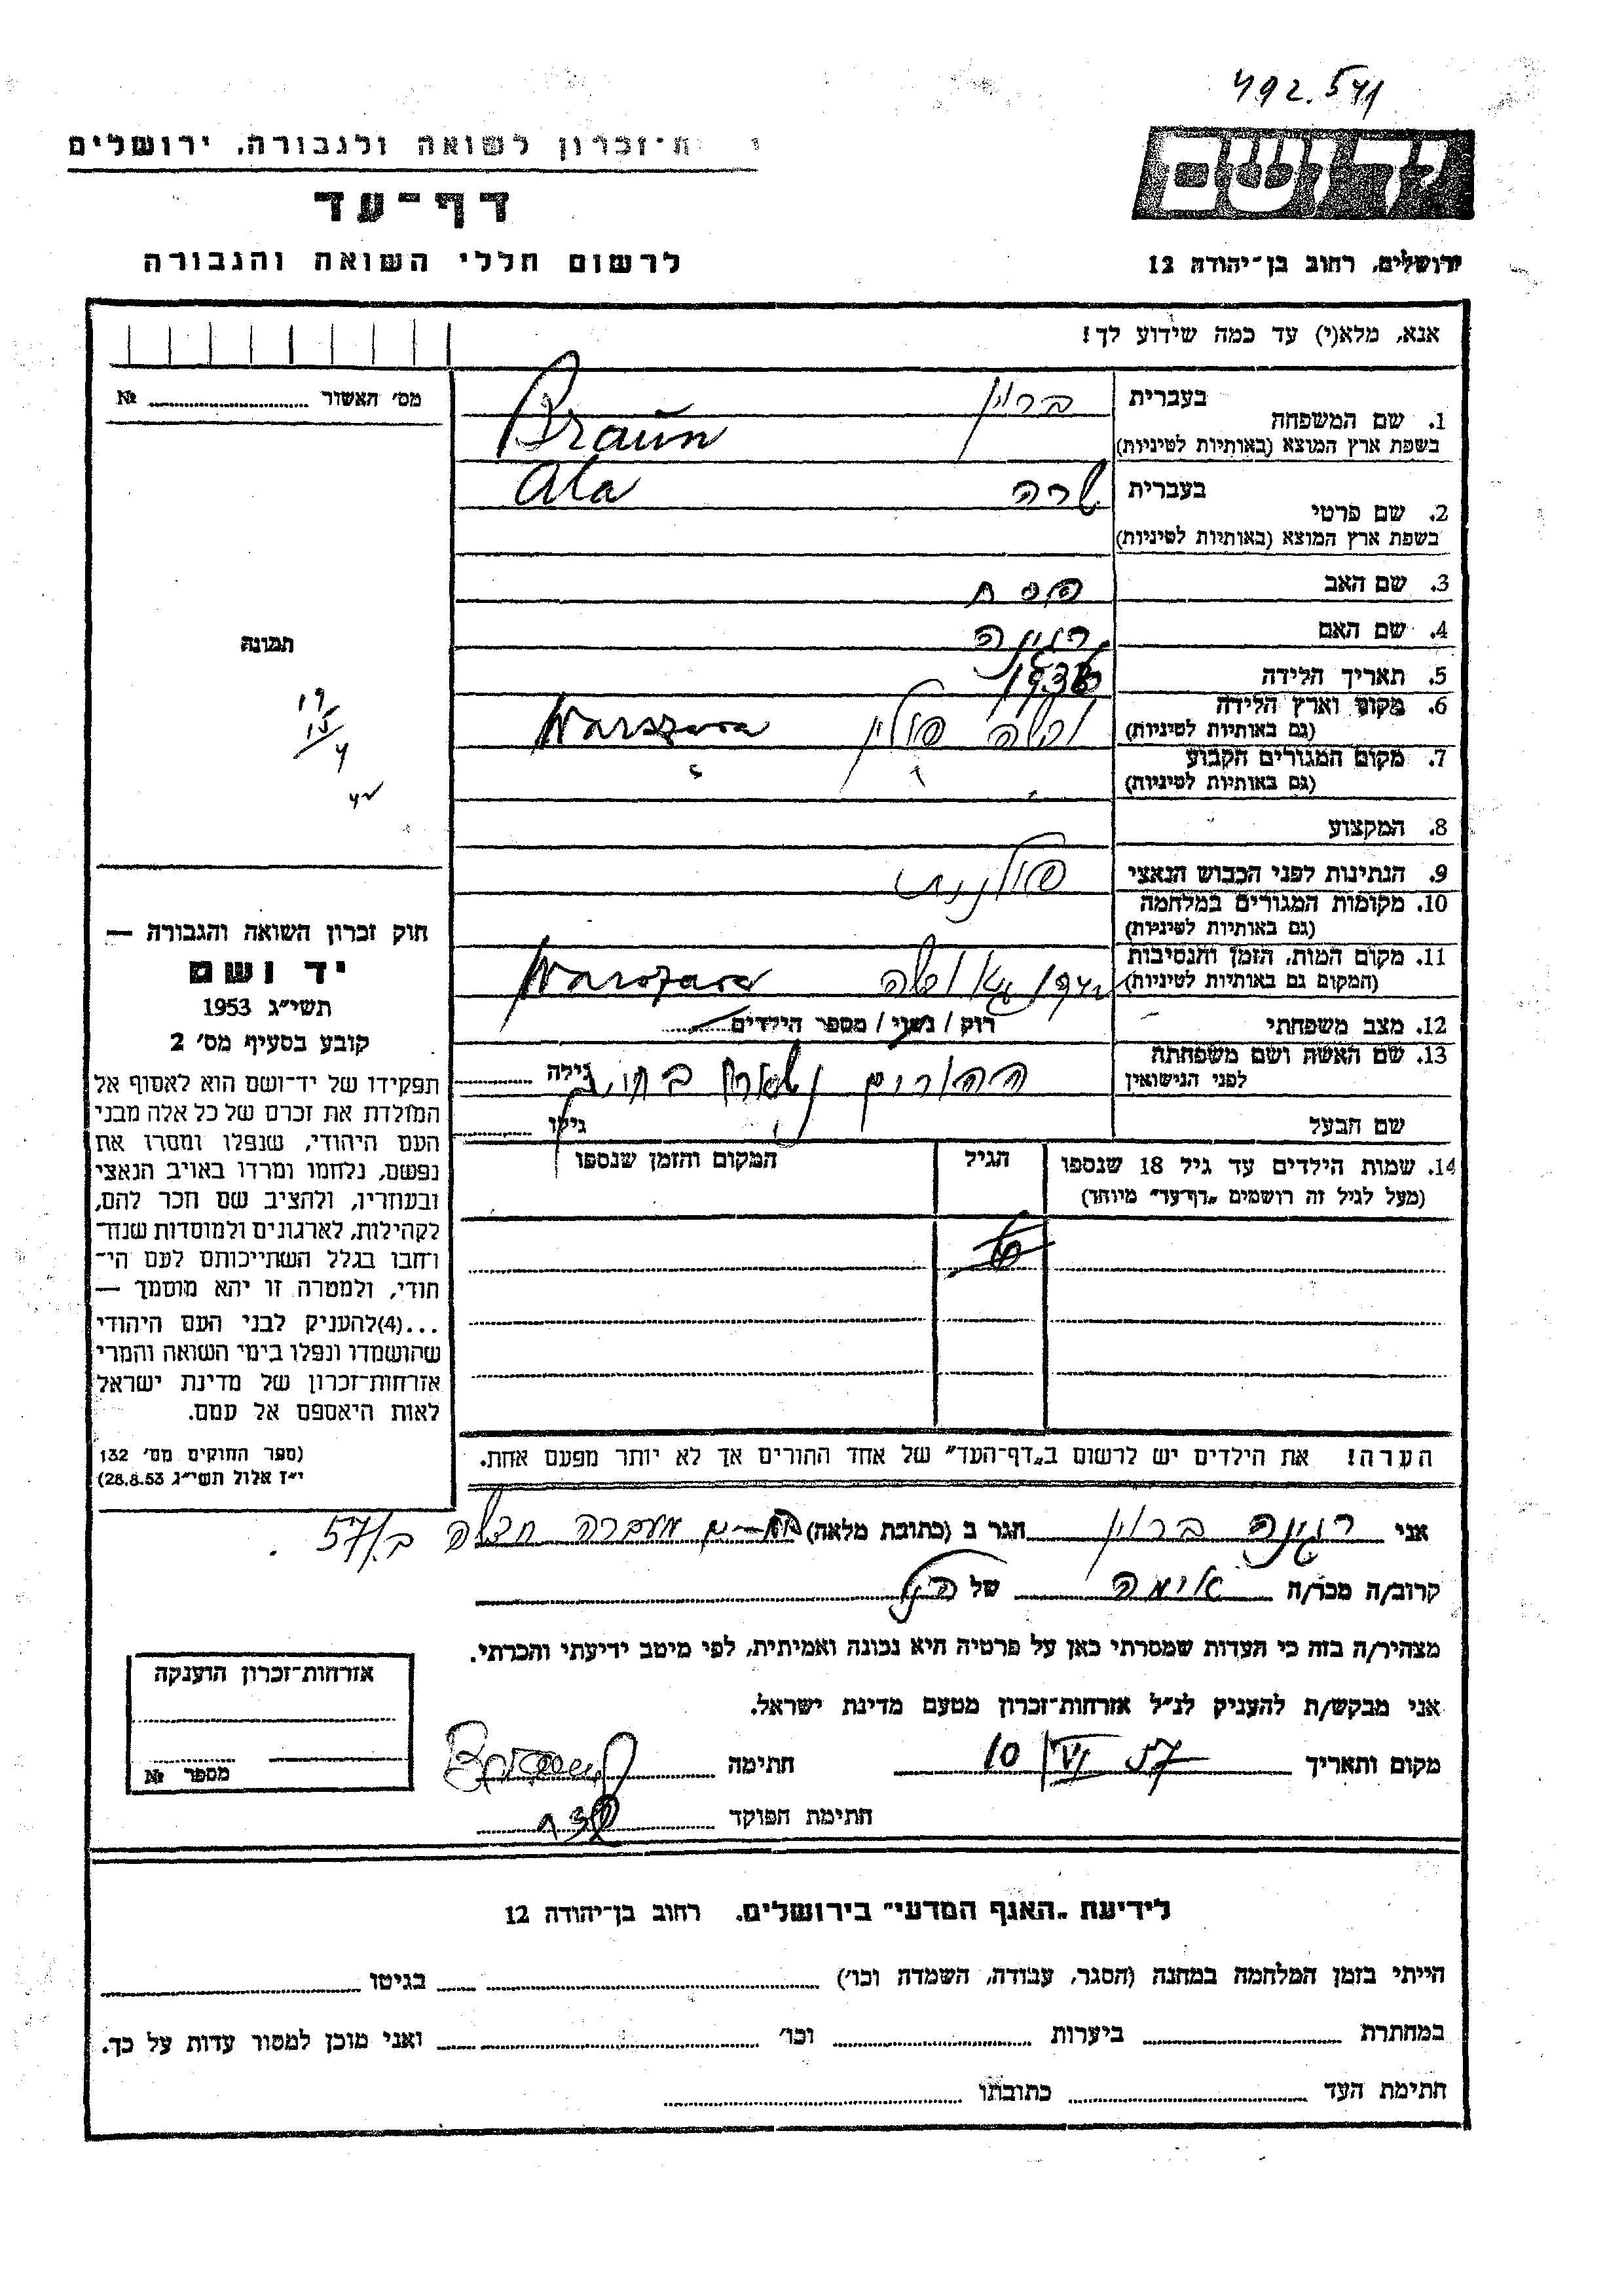 492.541
ת־זכרון לשואה ולגבורה, ירושלים
דף־עד
לרשום חללי השואה והגבורה
יד ושם
ירושלים, רחוב בן־יהודה 12
אנא, מלא(י) עד כמה שידוע לך!
מס׳ האשור № 
1. שם המשפחה
בעברית ברוין
בשפת ארץ המוצא (באותיות לטיניות) Braun
2. שם פרטי
בעברית שרה Ala
בשפת ארץ המוצא (באותיות לטיניות)
3. שם האב פסח
4. שם האם רגינה
5. תאריך הלידה
6. מקום וארץ הלידה ורשה פולין Warszawa
(גם באותיות לטיניות)
7. מקום המגורים הקבוע
(גם באותיות לטיניות)
8. המקצוע
9. הנתינות לפני הכבוש הנאצי פולנית
10. מקומות המגורים במלחמה
(גם באותיות לטיניות)
11. מקום המות, הזמן והנסיבות ורשה Warszawa
(המקום גם באותיות לטיניות)
12. מצב משפחתי רוק / נשוי / מספר הילדים
13. שם האשה ושם משפחתה
לפני הנישואין
גילה
ההורים נשארו בחיים
שם הבעל גילו
14. שמות הילדים עד גיל 18 שנספו הגיל המקום והזמן שנספו
(מעל לגיל זה רושמים „דף־עד״ מיוחד)
הערה! את הילדים יש לרשום ב„דף־העד״ של אחד ההורים אך לא יותר מפעם אחת.
תמונה
19
15
4
חוק זכרון השואה והגבורה —
יד ושם
תשי״ג 1953
קובע בסעיף מס׳ 2
תפקידו של יד־ושם הוא לאסוף אל
המולדת את זכרם של כל אלה מבני
העם היהודי, שנפלו ומסרו את
נפשם, נלחמו ומרדו באויב הנאצי
ובעוזריו, ולהציב שם וזכר להם,
לקהילות, לארגונים ולמוסדות שנח־
רבו בגלל השתייכותם לעם הי־
הודי, ולמטרה זו יהא מוסמך —
...(4)להעניק לבני העם היהודי
שהושמדו ונפלו בימי השואה והמרי
אזרחות־זכרון של מדינת ישראל
לאות היאספם אל עמם.
(ספר החוקים מס׳ 132
י״ז אלול תשי״ג 28.8.53)
אני רגינה ברוין הגר ב (כתובת מלאה) מעברה חדשה ב/57
קרוב/ה מכר/ה אימה של
מצהיר/ה בזה כי העדות שמסרתי כאן על פרטיה היא נכונה ואמיתית, לפי מיטב ידיעתי והכרתי.
אני מבקש/ת להעניק לנ״ל אזרחות־זכרון מטעם מדינת ישראל.
מקום ותאריך 10/VI 57 חתימה
חתימת הפוקד
אזרחות־זכרון הוענקה
מספר №
לידיעת „האגף המדעי״ בירושלים, רחוב בן־יהודה 12
הייתי בזמן המלחמה במחנה (הסגר, עבודה, השמדה וכו׳) בגיטו
במחתרת ביערות וכו׳ ואני מוכן למסור עדות על כך.
חתימת העד כתובתו